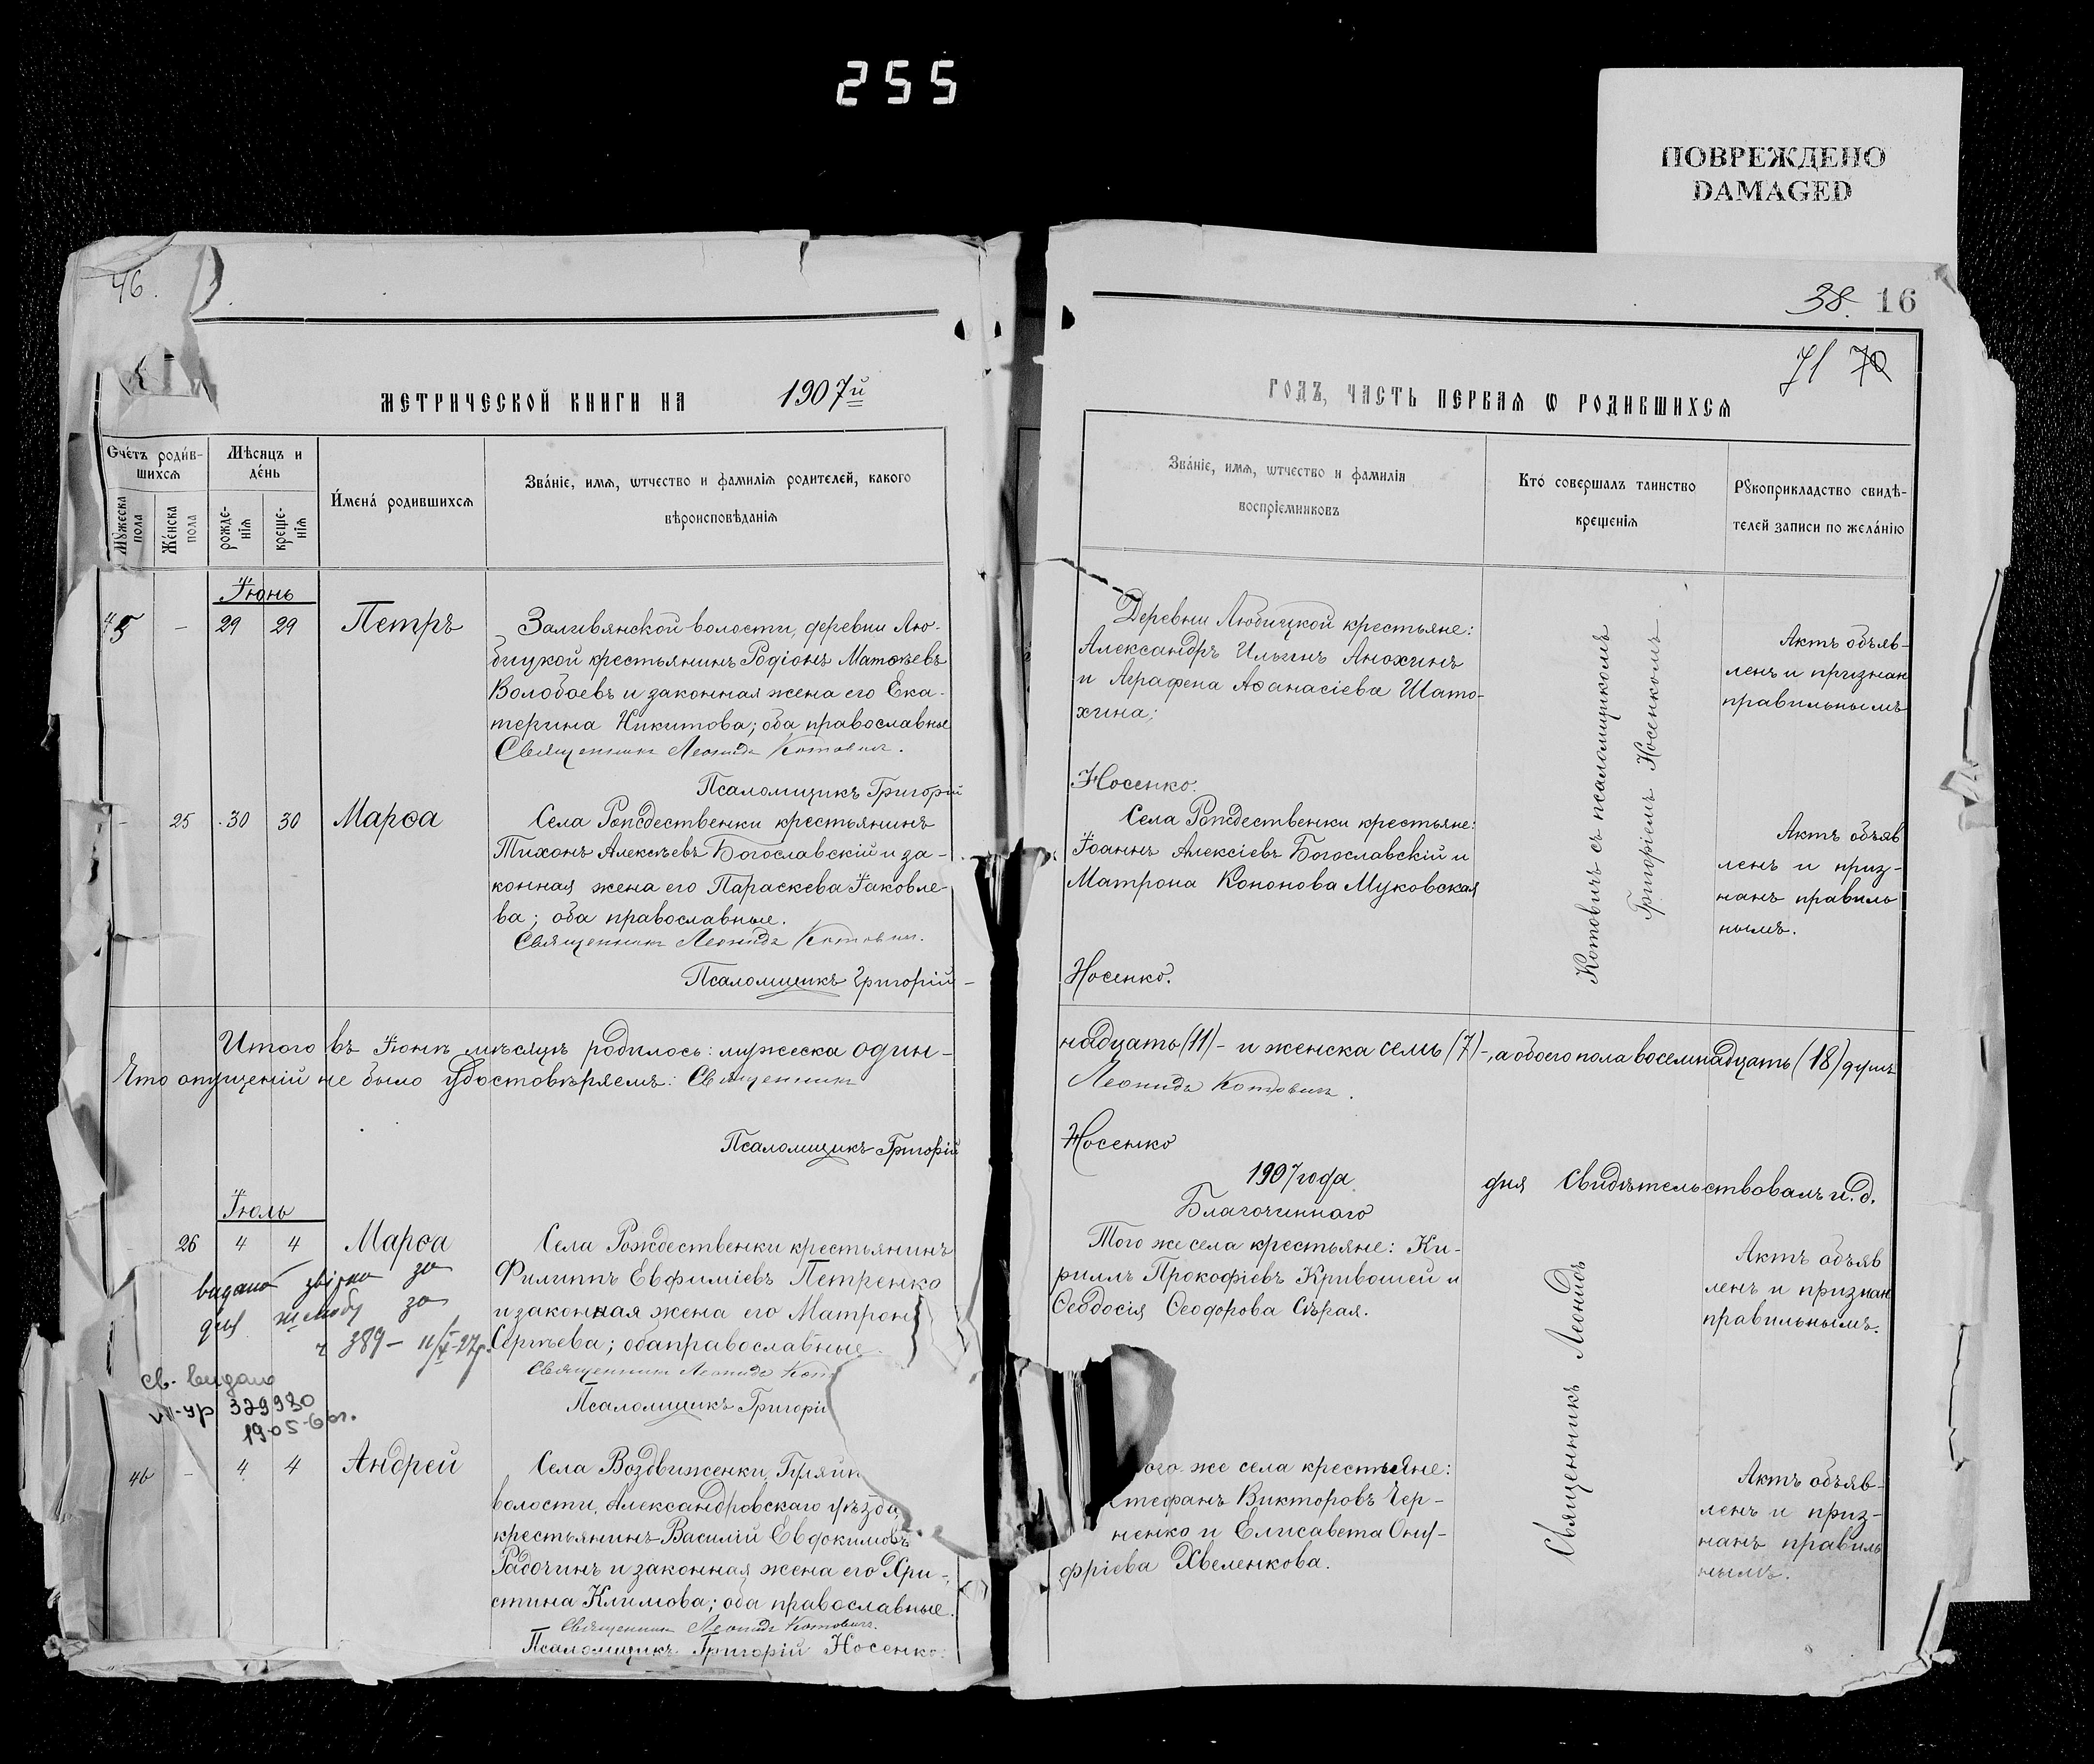 255
ПОВРЕЖДЕНО
DAMAGED
46.
38. 16
71 70
МЕТРИЧЕСКОЙ КНИГИ НА 1907й
ГОДЪ, ЧАСТЬ ПЕРВАЯ Ѡ РОДИВШИХСЯ
Счéтъ роди́вшихся
Мѣсяцъ и де́нь
Мꙋ́жеска пола
Же́нска пола
рожде-
нїя
креще-
нїя
И́мена́ родившихся
Зва́нїе, имя, ѡтчество и фамилїя родителей, какого
вѣроисповѣданїя
Зва́нїе, имя, ѡтчество и фамилїя
воспрїемниковъ
Кто́ совершалъ таинство
крещенїя
Рꙋкоприкладство свидѣ-
телей записи по жела́нїю
Іюнь
45 - 29 29 Петръ
Заливянской волости, деревни Лю-
бицкой крестьянинъ Родіонъ Матвѣевъ
Волобоевъ и законная жена его Ека-
терина Никитова; оба православные
Священникъ Леонидъ Котовичъ.
Псаломщикъ Григорій
Деревни Любицкой крестьяне:
Александръ Ильинъ Анохинъ
и Аграфена Аѳанасіева Шато-
хина;
Носенко.
Котовичъ съ псаломщикомъ
Григоріемъ Носенкомъ
Актъ объяв-
ленъ и признан
правильнымъ
- 25 30 30 Марѳа
Села Рождественки крестьянинъ
Тихонъ Алексѣевъ Богославскій и за-
конная жена его Параскева Іаковле-
ва; оба православные.
Священникъ Леонидъ Котовичъ.
Псаломщикъ Григорій-
Села Рождественки крестьяне:
Іоаннъ Алексіевъ Богославскій и
Матрона Кононова Муковская
Носенко.
Актъ объяв
ленъ и приз-
нанъ правиль
нымъ.
Итого въ Іюнѣ мѣсяцѣ родилось: мужеска один-
надцать (11) - и женска семь (7)-, а обоего пола восемнадцать (18) душъ
Что опущеній не было удостовѣряемъ: Священникъ
Леонидъ Котовичъ.
Псаломщикъ Григорій
Носенко
1907 года дня Свидѣтельствовалъ и.д.
Благочиннаго
Іюль
26 4 4 Марѳа
Села Рождественки крестьянинъ
Филиппъ Евфиміевъ Петренко
и законная жена его Матрона
Сергѣева; оба православные.
Священникъ Леонидъ Кот
Псаломщикъ Григорій
видано для за
389 - 11/X-27р.
св. видано
329930
1905-6
Того же села крестьяне: Ки-
риллъ Прокофіевъ Кривошей и
Ѳеодосія Ѳеодорова Сѣрая.
Священникъ Леонидъ
Актъ объяв
ленъ и признан
правильнымъ.
46 - 4 4 Андрей
Села Воздвиженки,
волости, Александровскаго уѣзда
крестьянинъ Василій Евдокимовъ
и законная жена его Хри-
стина Климова; оба православные.
Священникъ Леонидъ Котовичъ.
Псаломщикъ Григорій Носенко.
ого же села крестьяне:
Стефанъ Викторовъ Чер-
ненко и Елисавета Ону-
фріева Хвеленкова.
Актъ объяв-
ленъ и приз-
нанъ правиль
нымъ.